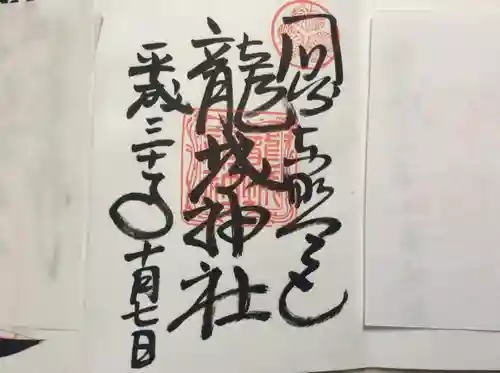 岡崎東照宮
龍城神社
平成三十年十月七日